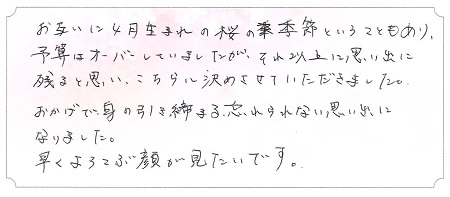 お互いに4月生まれの桜の季節ということもあり、
予算はオーバーしていましたが、それ以上に思い出に
残ると思い、こちらに決めさせていただきました。
おかげで身の引き締まる、忘れられない思い出に
なりました。
早くよろこぶ顔が見たいです。